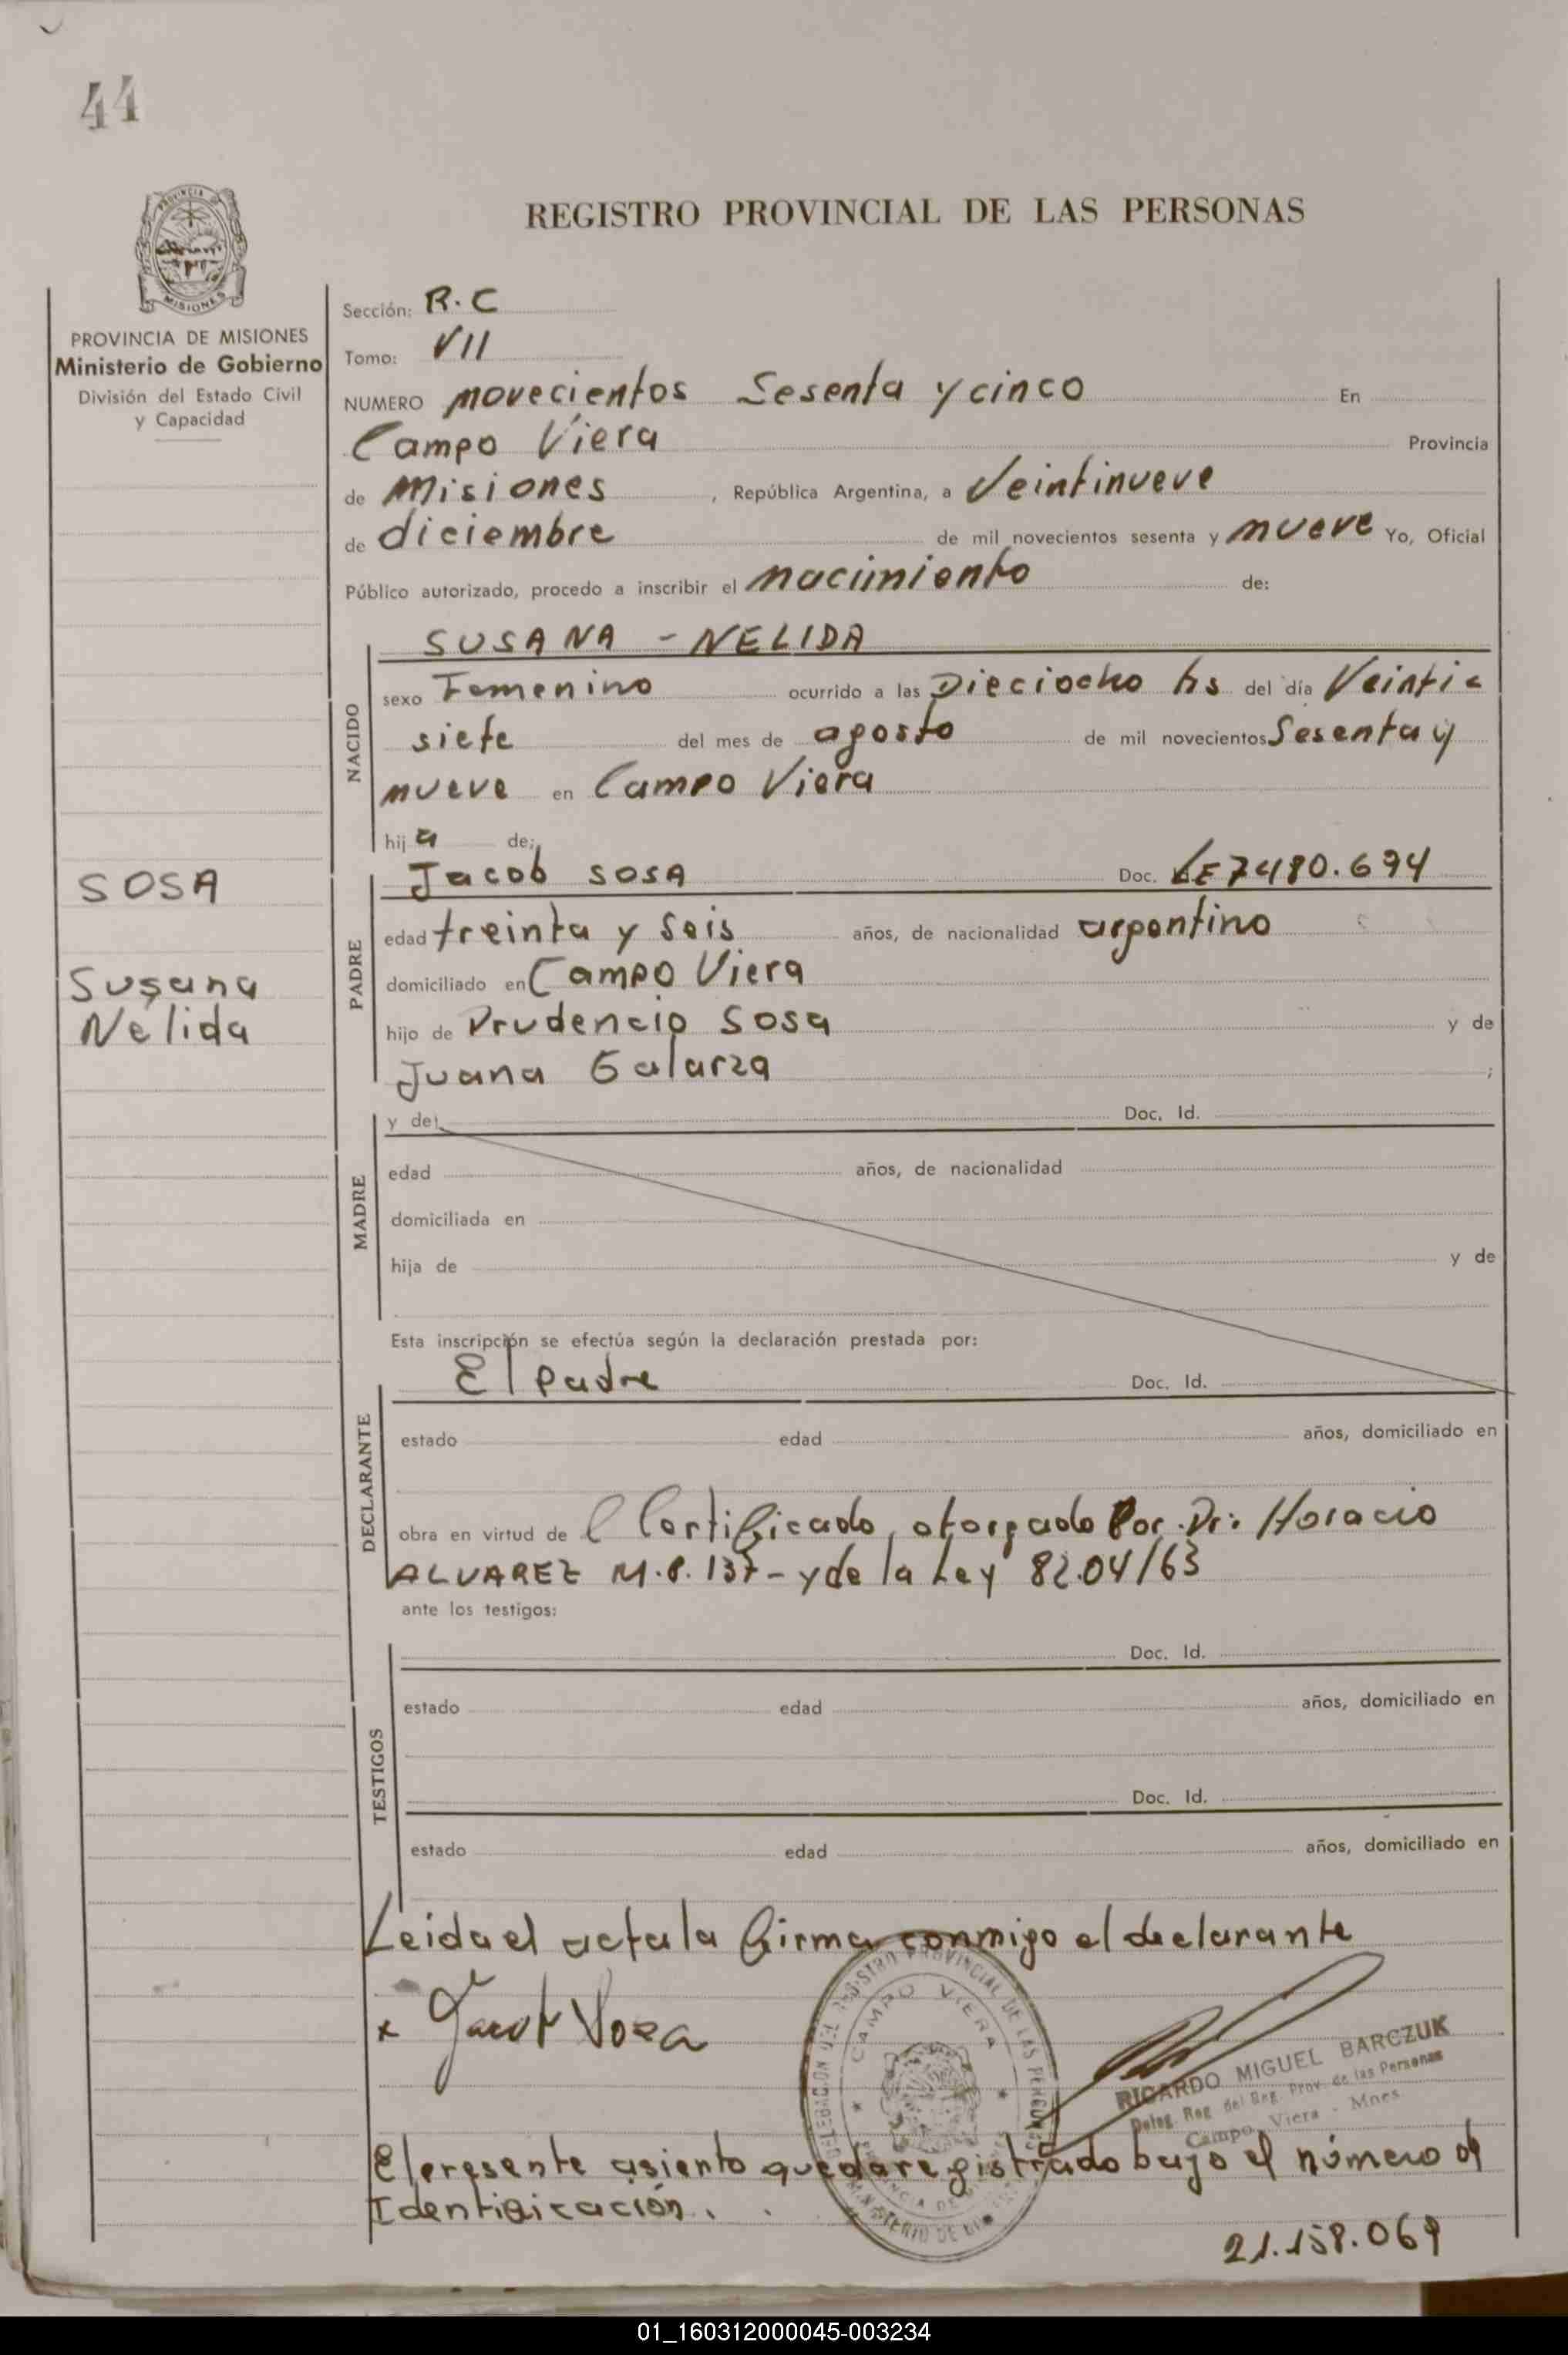 44
REGISTRO PROVINCIAL DE LAS PERSONAS
PROVINCIA DE MISIONES
Ministerio de Gobierno
División del Estado Civil
y Capacidad
SOSA
Susana
Nelida
Sección: R.C
Tomo: VII
NUMERO novecientos Sesenta y cinco En
Campo Viera Provincia
de Misiones, República Argentina, a Veintinueve
de diciembre de mil novecientos sesenta y nueve Yo, Oficial
Público autorizado, procedo a inscribir el nacimiento de:
NACIDO
SUSANA - NELIDA
sexo Femenino ocurrido a las Dieciocho hs del día Veinti
siete del mes de agosto de mil novecientos Sesenta y
nueve en Campo Viera
hij a de;
PADRE
Jacob SOSA Doc. LE 7480.694
edad treinta y seis años, de nacionalidad argentino
domiciliado en Campo Viera
hijo de Prudencio Sosa y de
Juana Galarza ;
MADRE
y de: Doc. Id.
edad años, de nacionalidad
domiciliada en
hija de y de
Esta inscripción se efectúa según la declaración prestada por:
DECLARANTE
El padre Doc. Id.
estado edad años, domiciliado en
obra en virtud de l Certificado, otorgado Por. Dr: Horacio
ALVAREZ M.P. 137 - y de la Ley 82.04/63
ante los testigos:
TESTIGOS
Doc. Id.
estado edad años, domiciliado en
Doc. Id.
estado edad años, domiciliado en
Leida el acta la firma conmigo el declarante
x Jacob Sosa
CAMPO VIERA
RICARDO MIGUEL BARCZUK
Deleg. Reg. del Reg. Prov. de las Personas
Campo Viera - Mnes
El presente asiento queda registrado bajo el número de
Identificación.
21.158.069
01_160312000045-003234